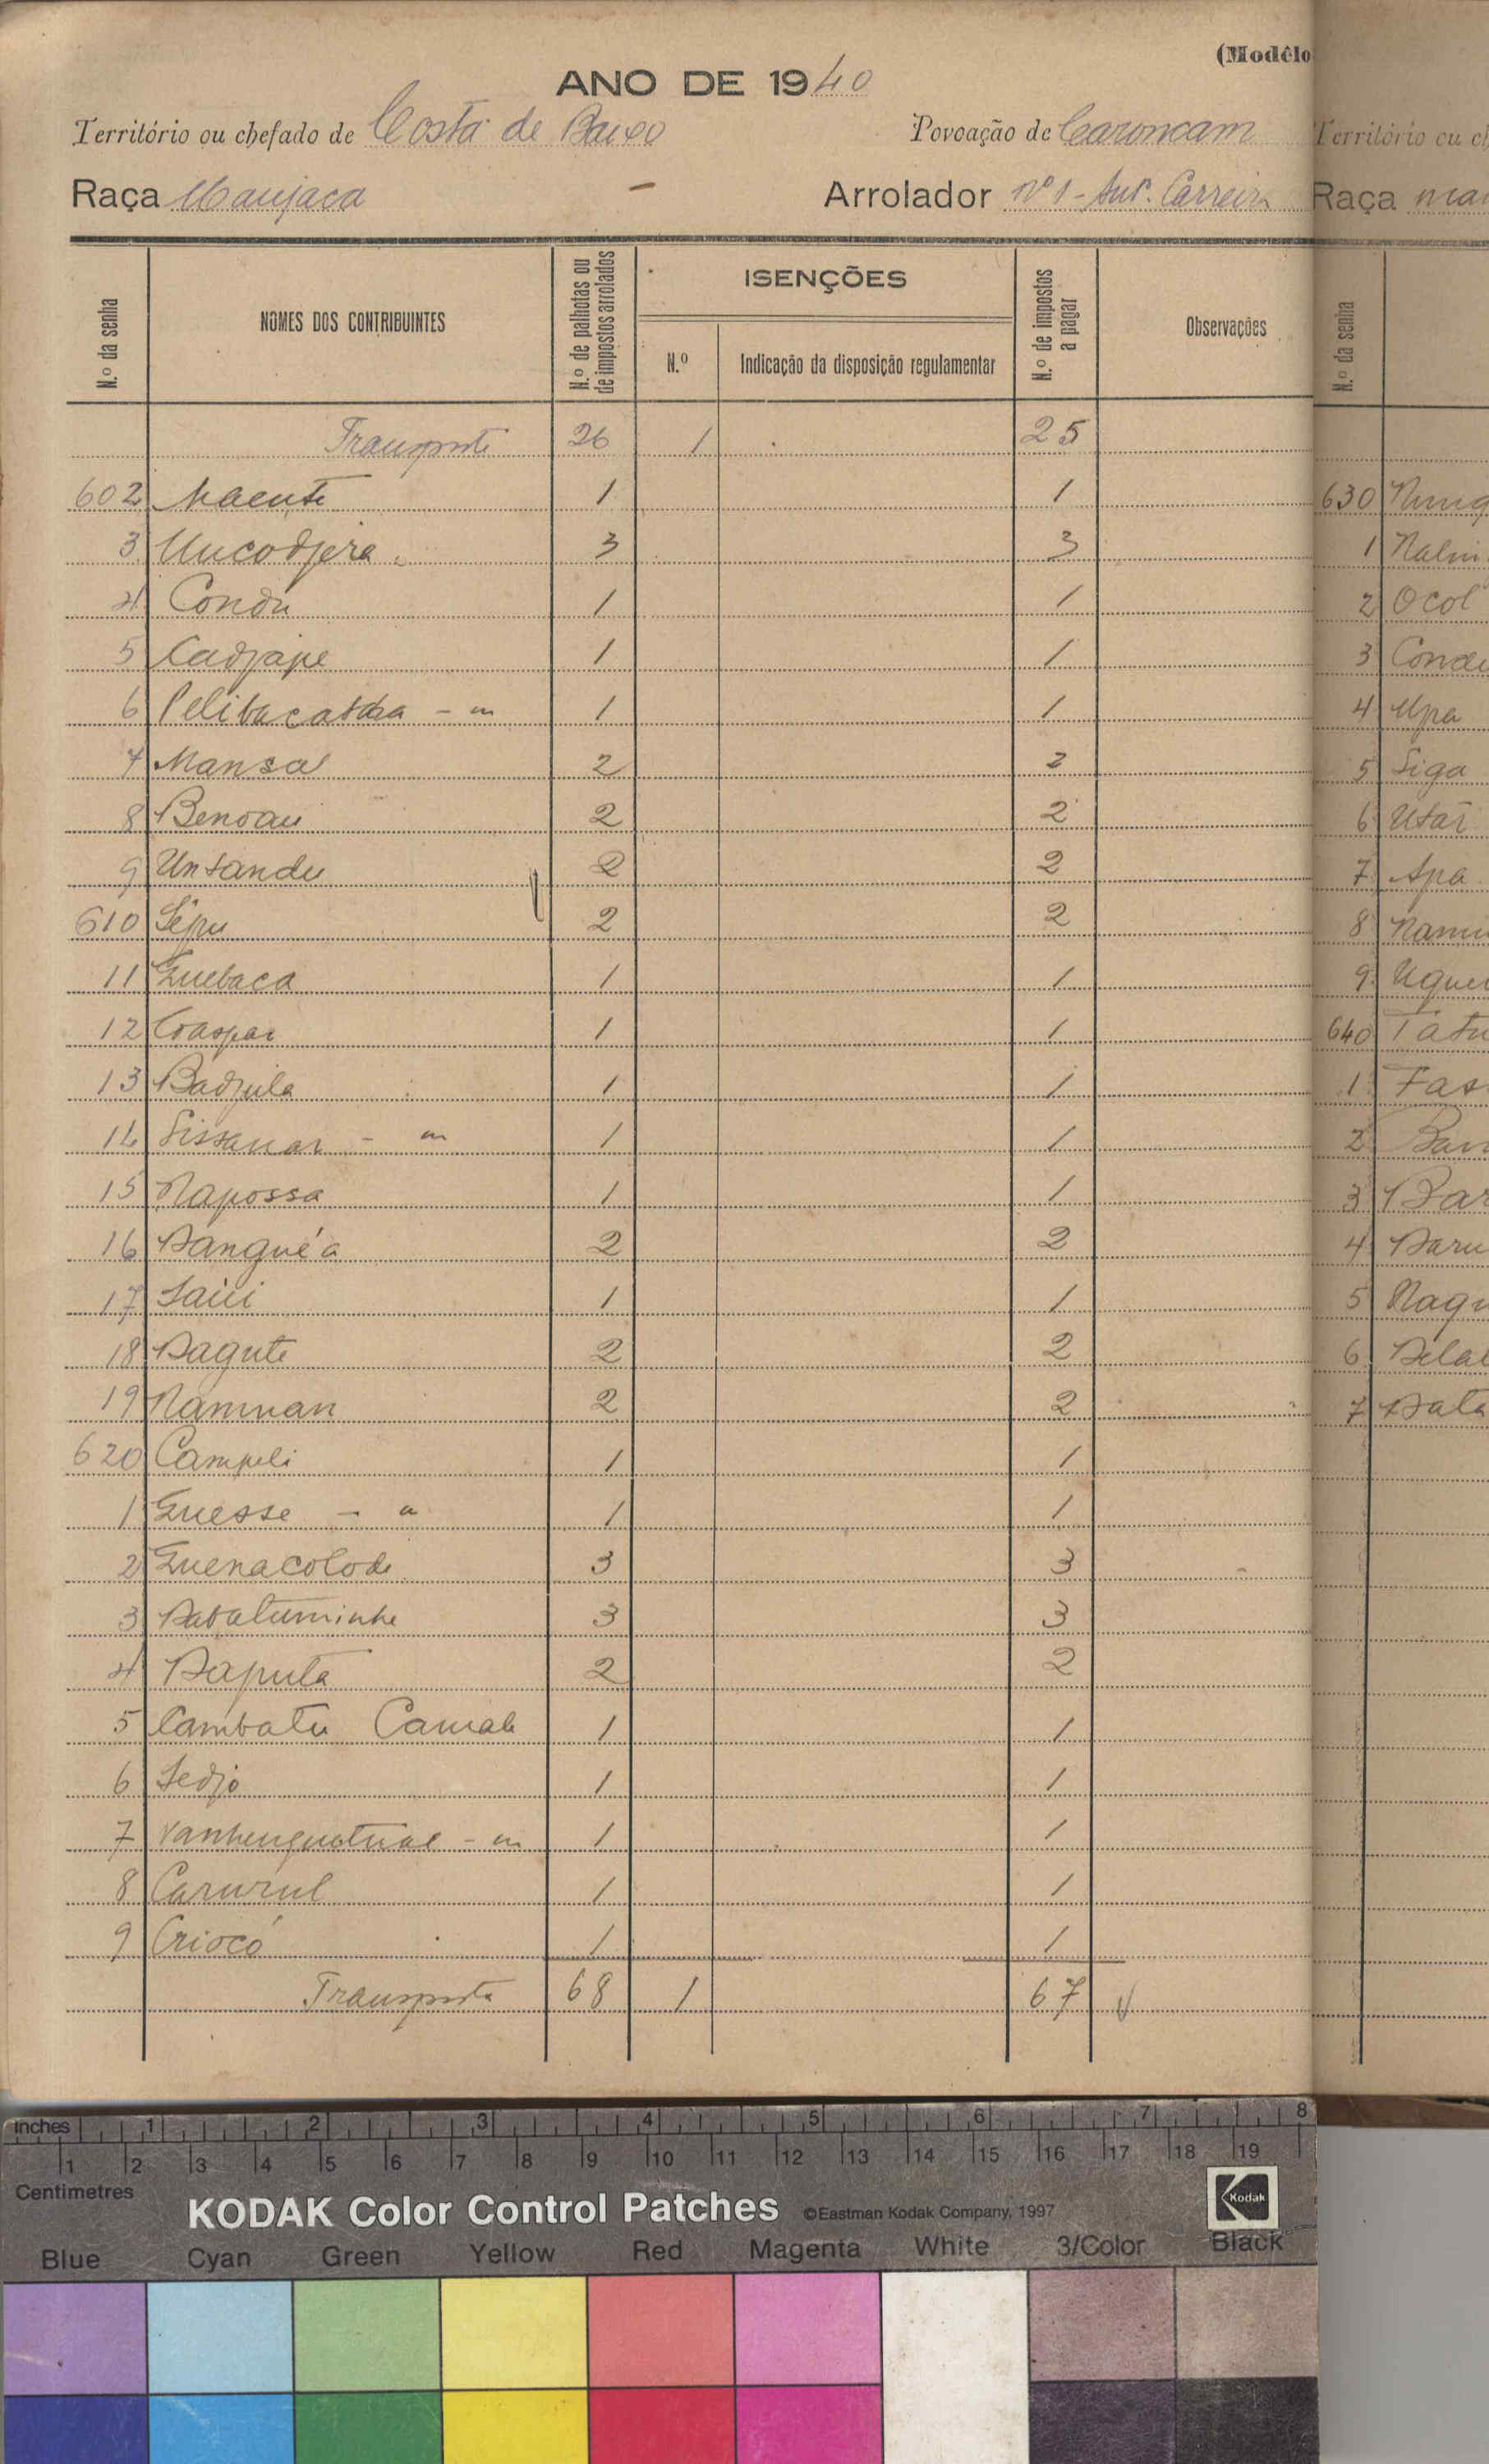 (Modêlo
ANO DE 1940
Território ou chefado de Costa de Baixo Povoação de Caroncam
Raça Manjaca — Arrolador Nº 1 - Antº. Carreira
N.º da senha NOMES DOS CONTRIBUINTES N.º de palhotas ou de impostos arrolados ISENÇÕES N.º Indicação da disposição regulamentar N.º de impostos a pagar Observações
Transporte 26 1 25
602 Naente 1 1
3 Uncodjera 3 3
4 Condu 1 1
5 Cadjape 1 1
6 Pelibacatcha - m 1 1
7 Mansal 2 2
8 Benoau 2 2
9 Untandu 2 2
610 Sépu 2 2
11 Quebaca 1 1
12 Coaspar 1 1
13 Badjula 1 1
14 Sissanar - m 1 1
15 Napossa 1 1
16 Danguéa 2 2
17 Saiii 1 1
18 Dagute 2 2
19 Namuan 2 2
620 Campeli 1 1
1 Quesse - a 1 1
2 Quenacolode 3 3
3 Dabatuminhe 3 3
4 Daputa 2 2
5 Cambatu Camab 1 1
6 Sedjó 1 1
7 - m 1 1
8 Carurul 1 1
9 Criocó 1 1
Transporte 68 1 67
Território ou ch
Raça man
N.º da senha
630 Nung
1 Nalui
2 Ocol
3 Condu
4 Upa
5 Siga
6 Utai
7 Apa
8 Namu
9 Uque
640 Tatu
1 Fas
2 Ban
3 Bar
4 Daru
5 Naqu
6 Delal
7 Data
inches 1 2 3 4 5 6 7 8
1 2 3 4 5 6 7 8 9 10 11 12 13 14 15 16 17 18 19
Centimetres
KODAK Color Control Patches ©Eastman Kodak Company, 1997 Kodak
Blue Cyan Green Yellow Red Magenta White 3/Color Black